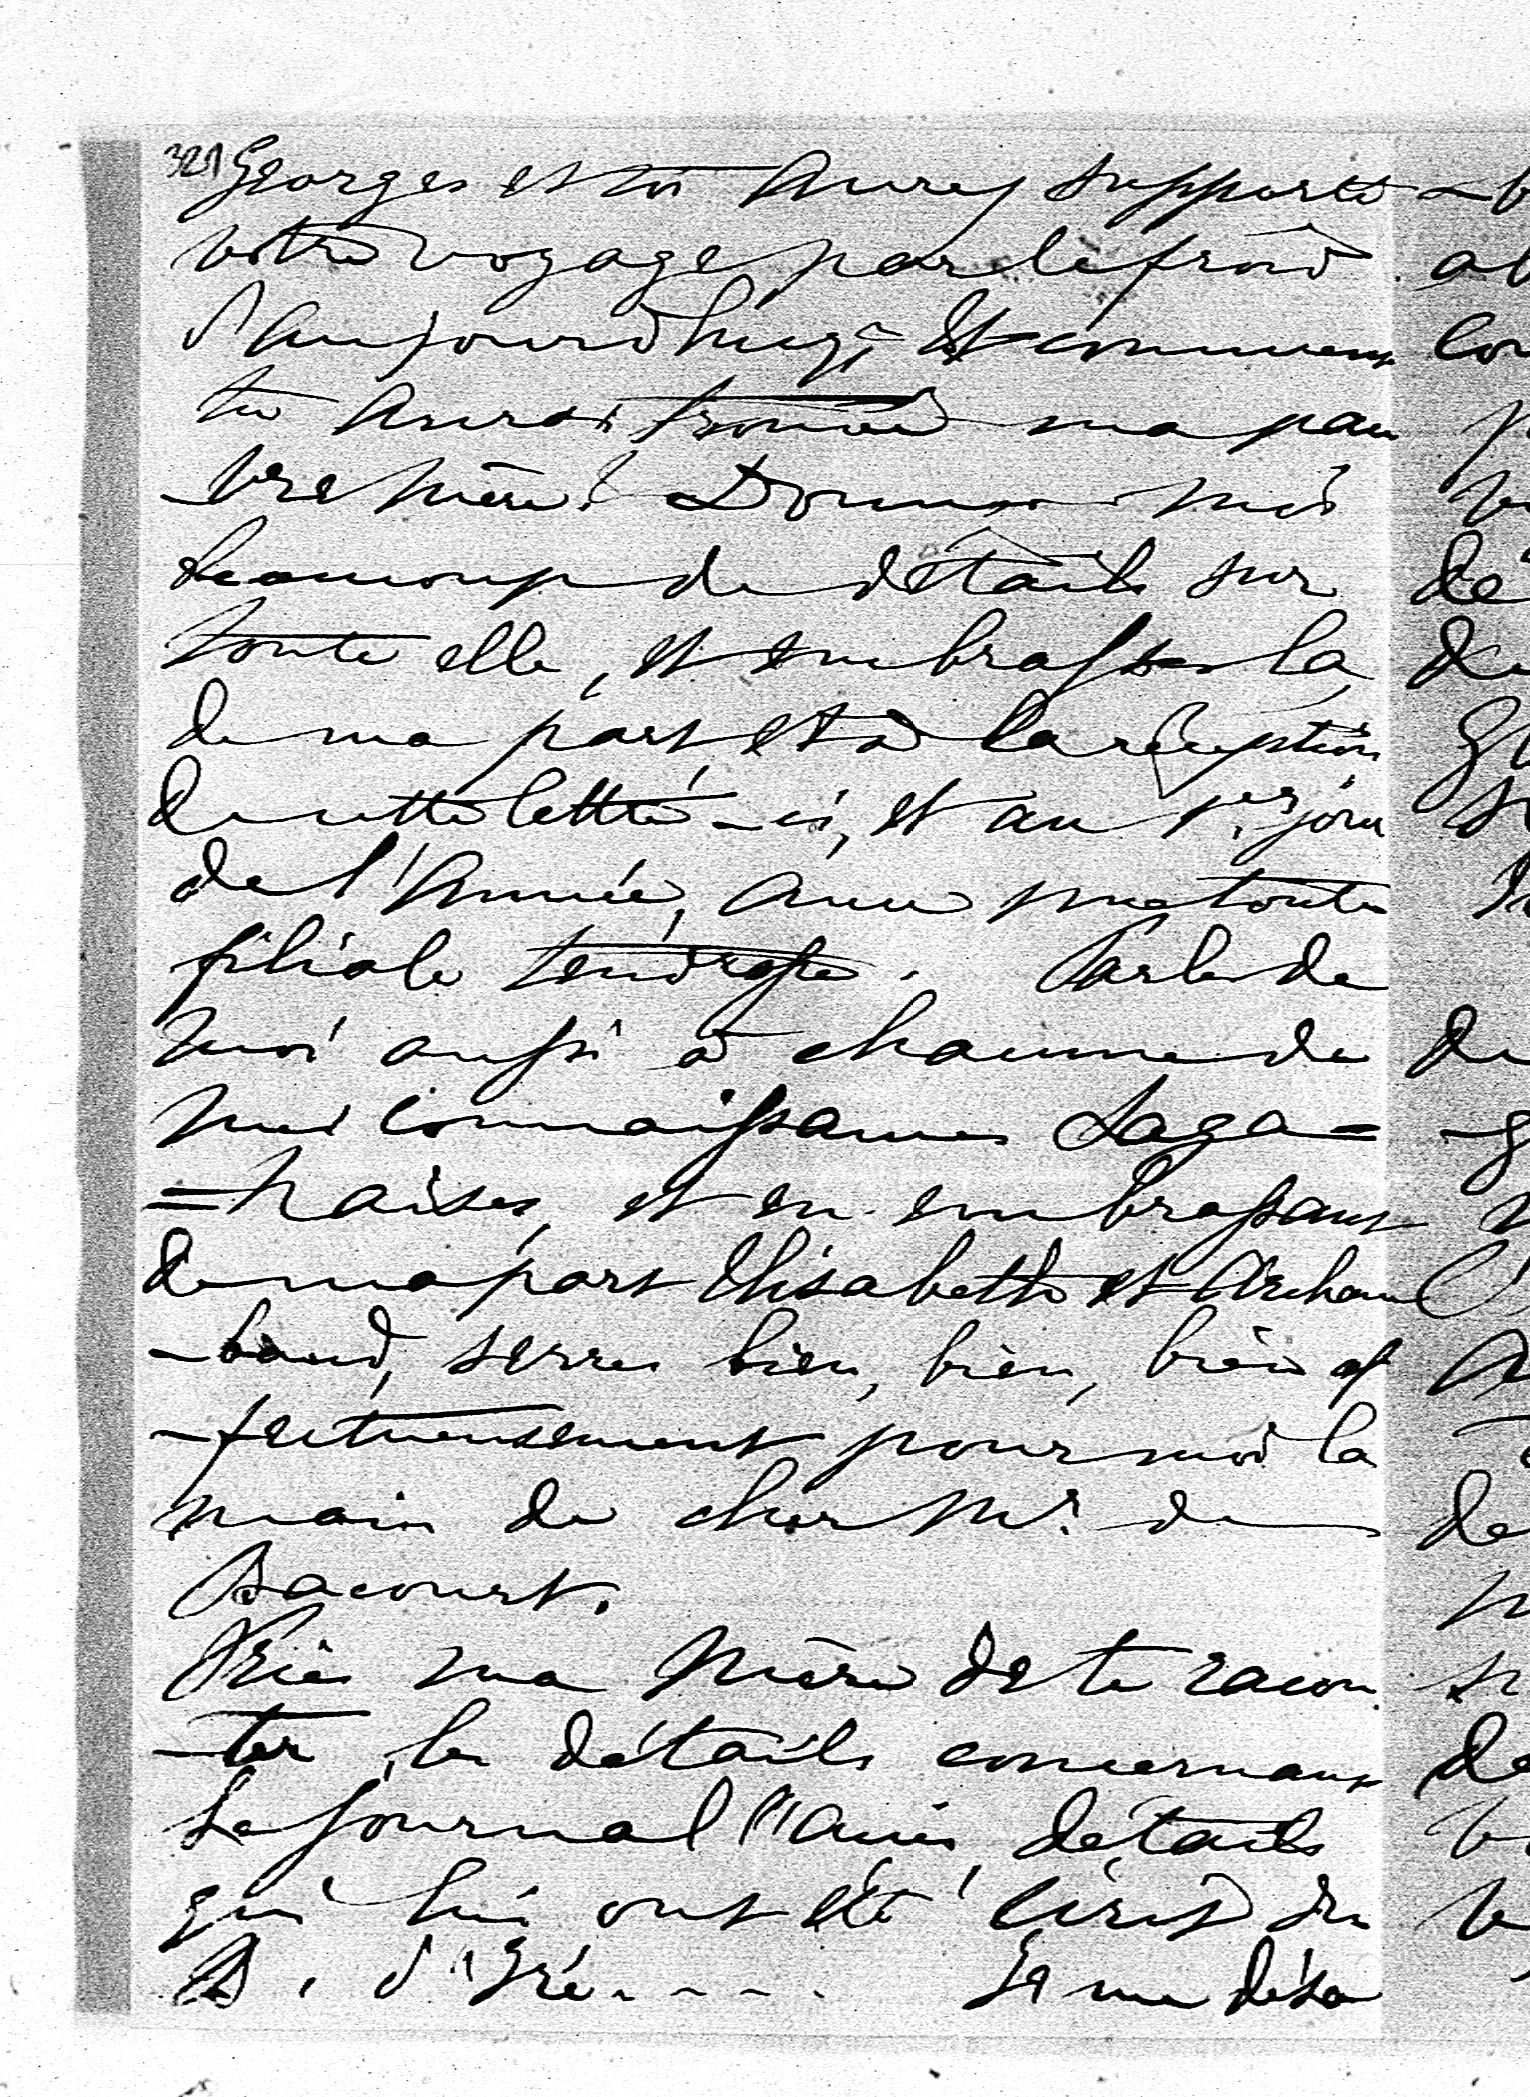 321 Georges et toi aurez supporté
votre voyage par le froid
d'aujourd'huy, et comment
tu auras trouvé ma pau
vre mère! Donnes moi
beaucoup de détails sur
toute elle, et embrasses la,
de ma part, et à la réception
de cette lettre-ci, et au 1er jour
de l'année, avec ma toute
filiale tendresse. Parles de
moi aussi à chacune de
mes connaissances Saga=
=naises, et en embrassant
de ma part Elisabeth et Archam
-baud, serres bien, bien, bien af
-fectueusement pour moi la
main de cher Mr. de
Bacourt.
Pries ma mère de te racon
-ter, les détails concernant
le journal l'ami, détails
qui lui ont été écrits de
B. d'Izé.... Je me déso